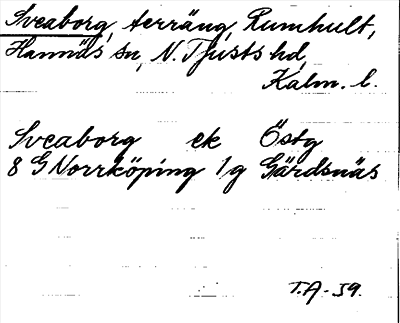 Sveaborg, terräng, Rumhult,
Hannäs sn, N. Tjusts hd,
Kalm. l.
Sveaborg ek Östg
8 G Norrköping 1 g Gärdsnäs
T.A. -39.